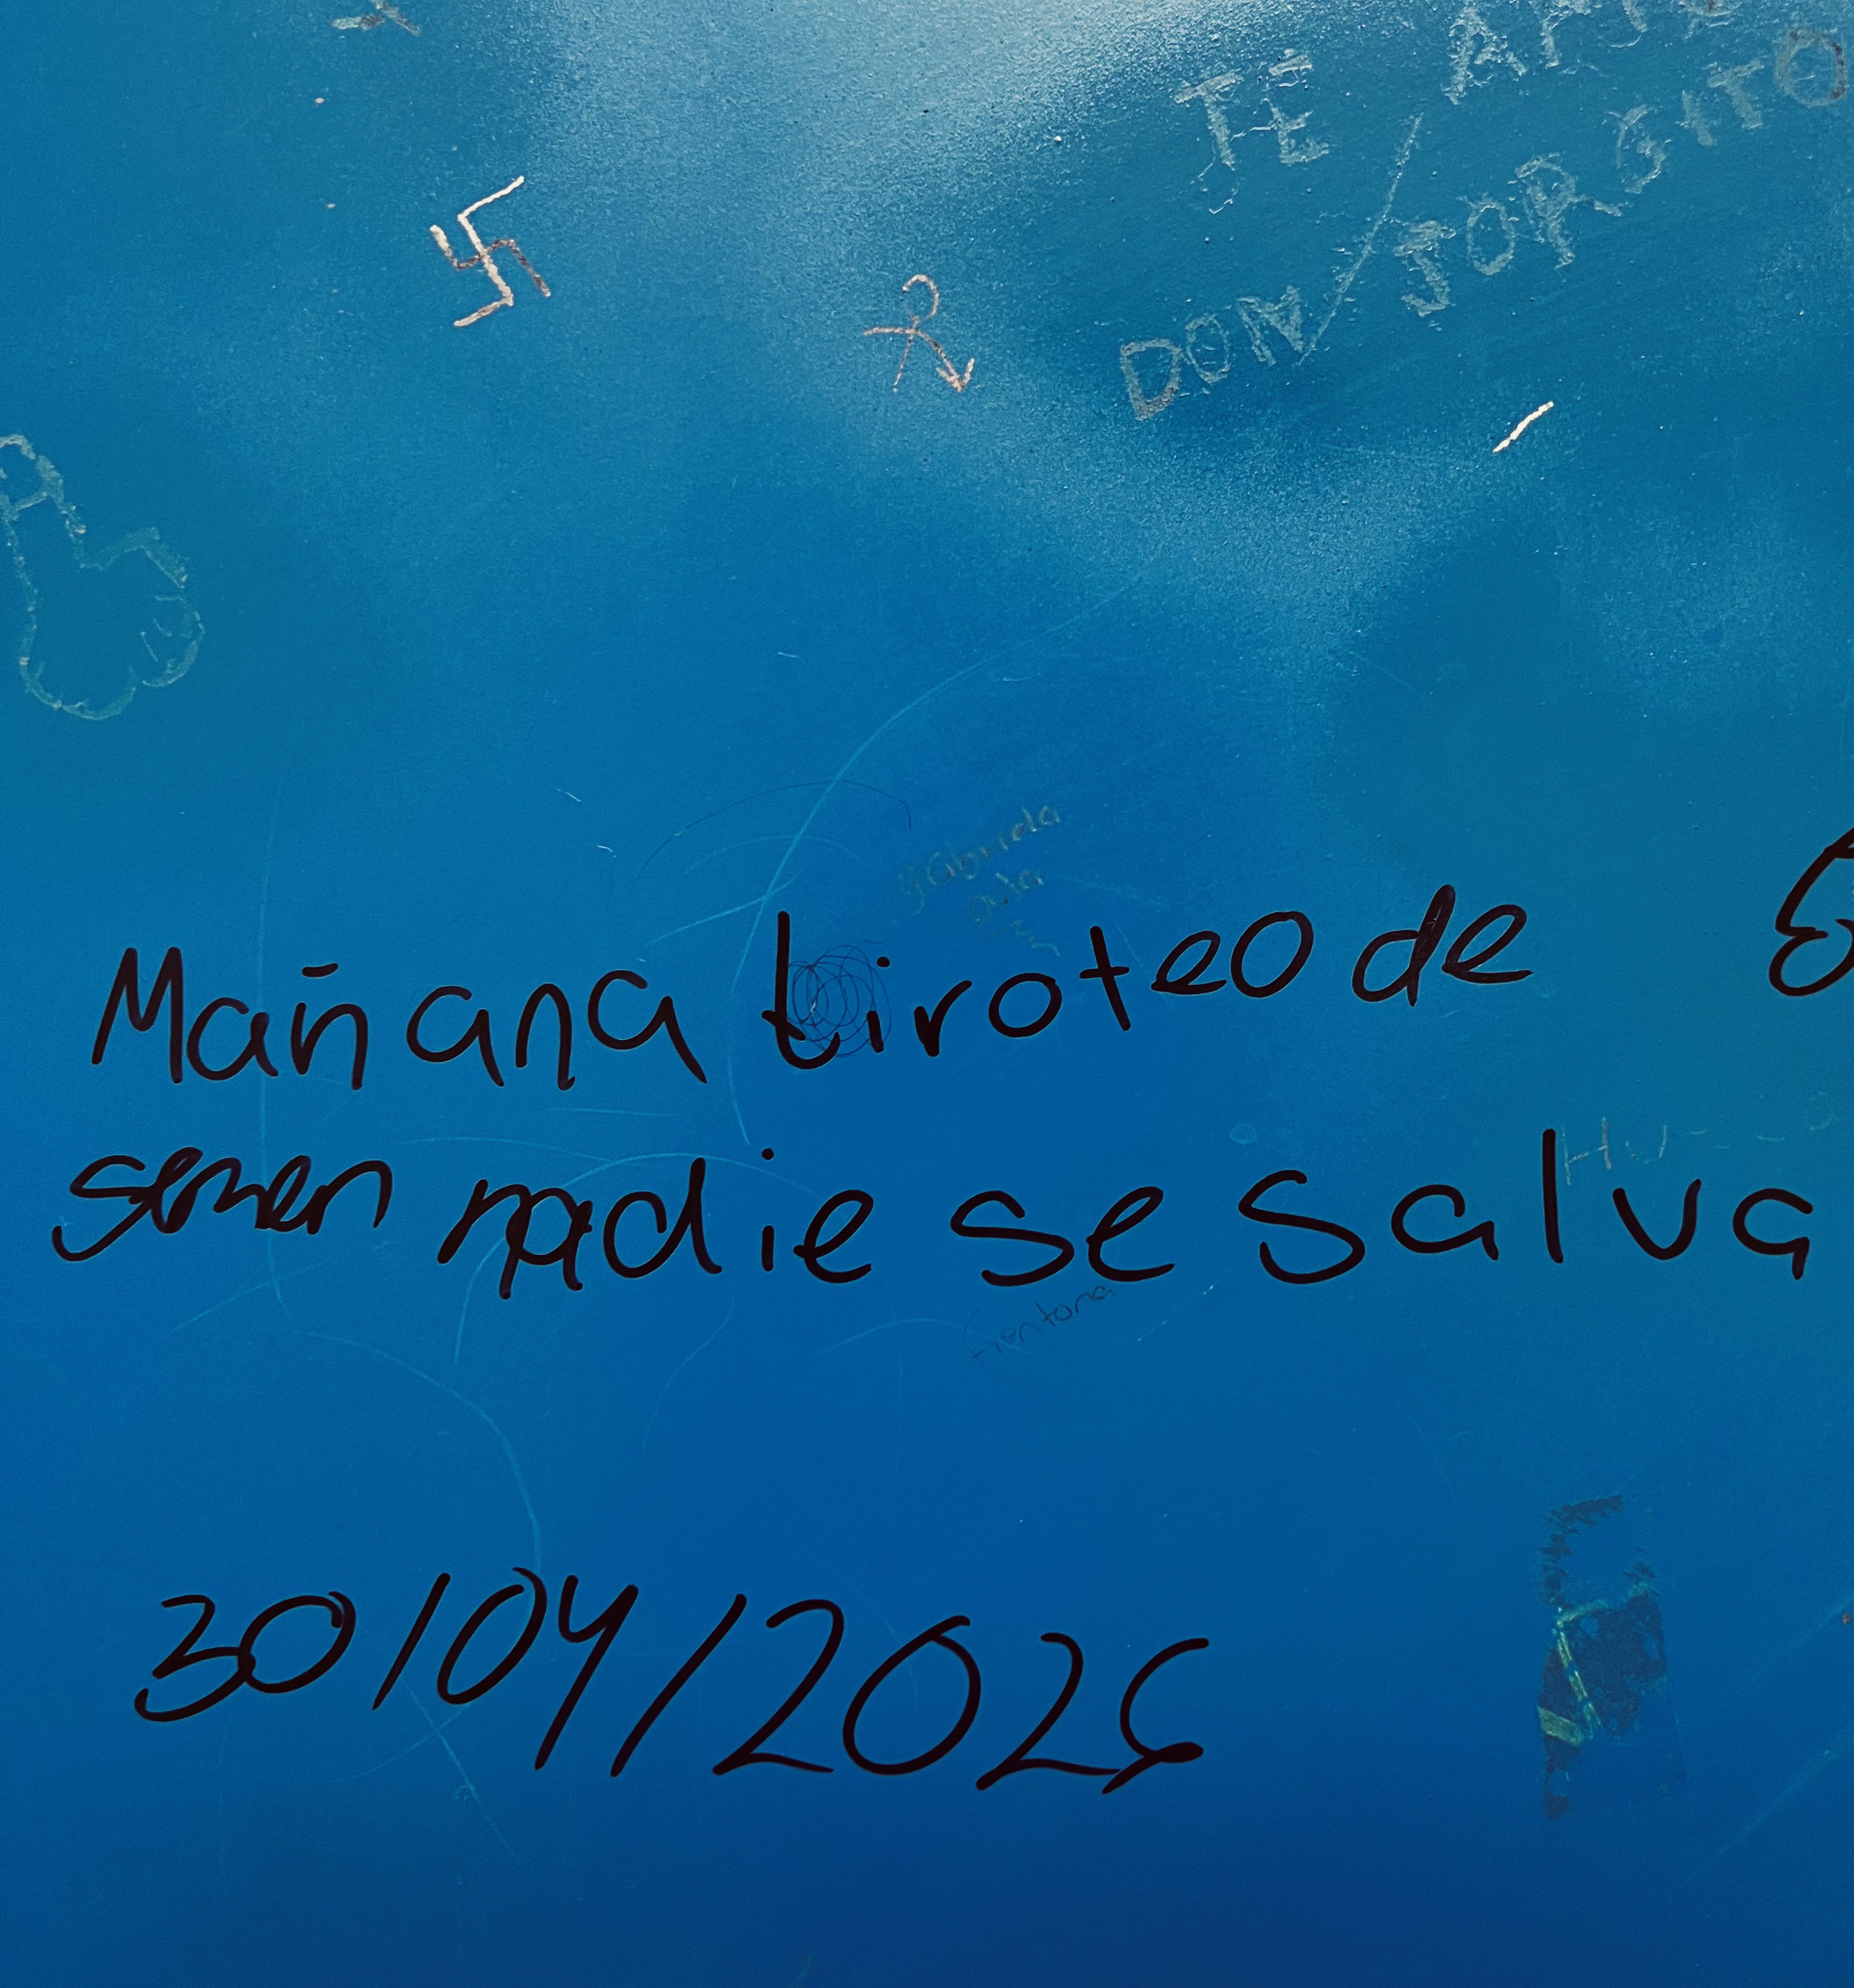 TE
DON JORGITO
Mañana tiroteo de
semen nadie se salva
30/04/2026